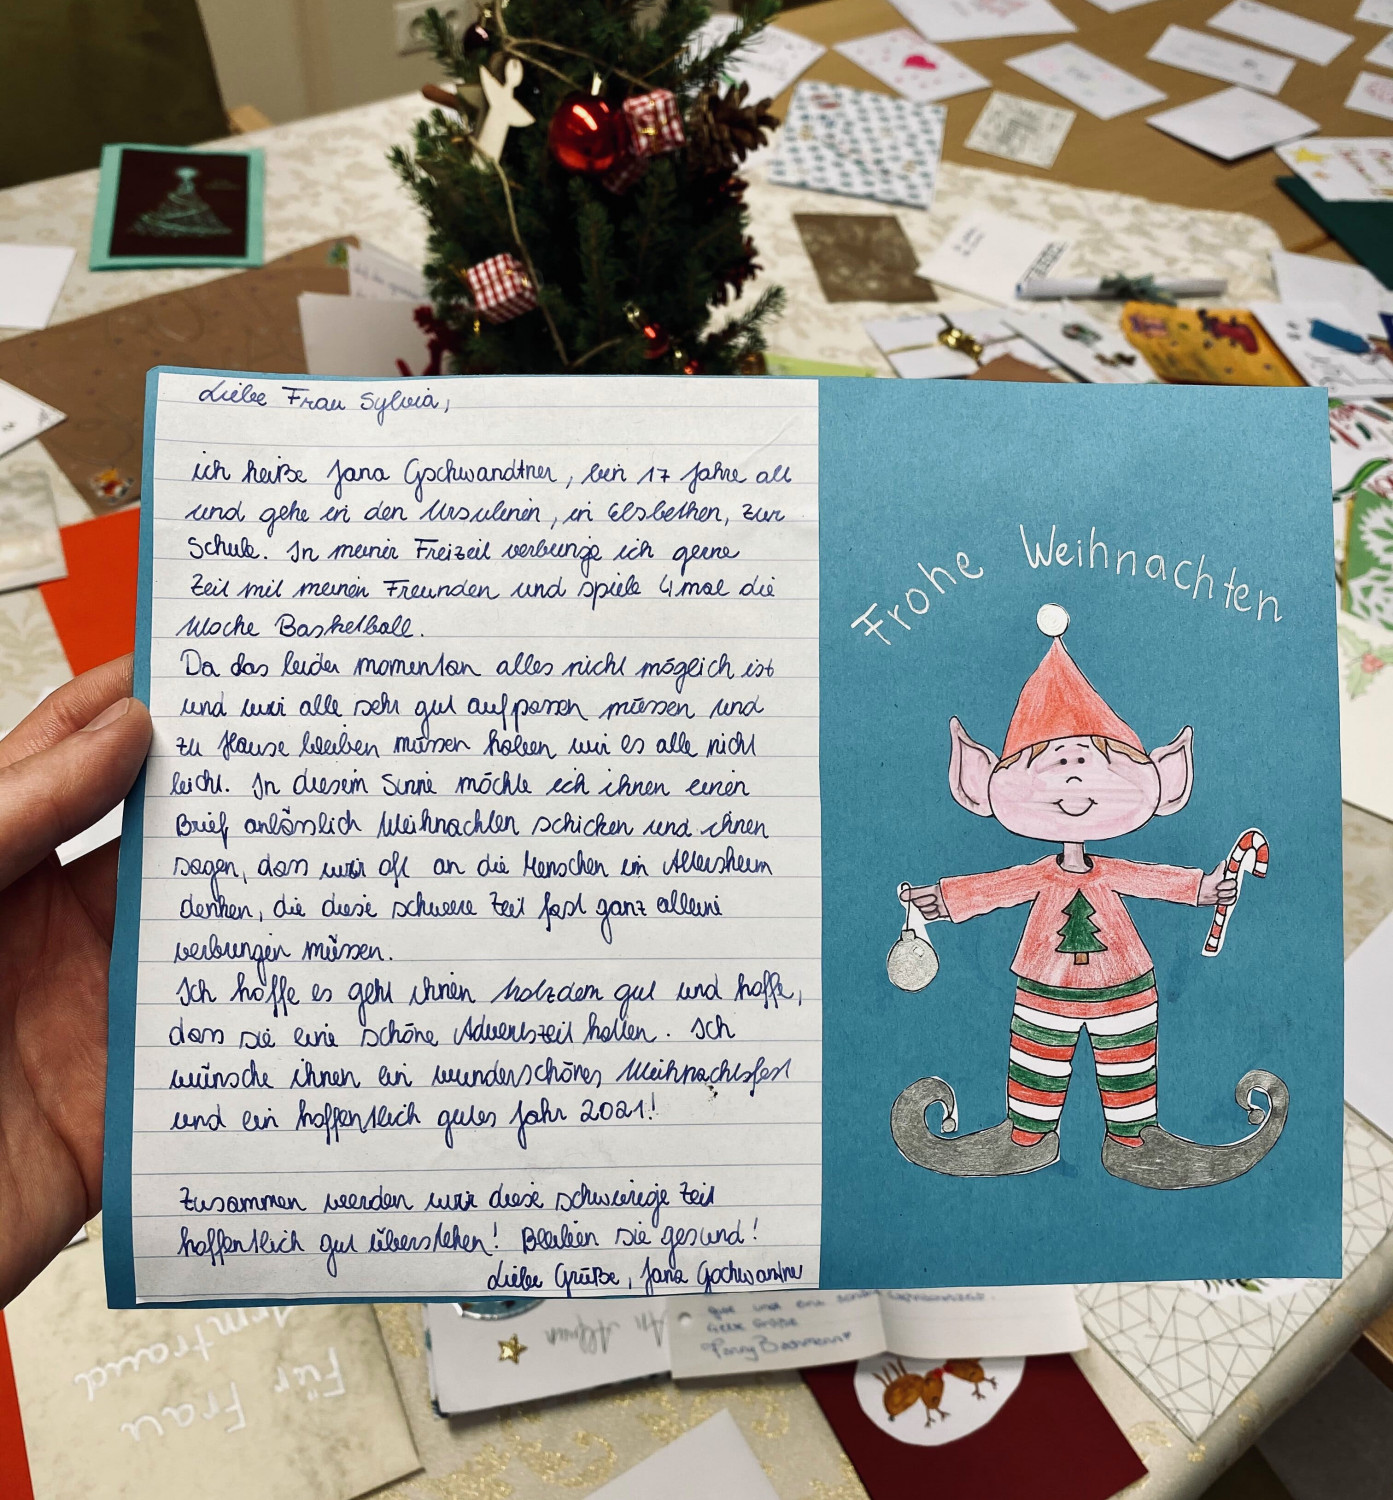 Liebe Frau Sylvia,
ich heiße Jana Gschwandtner, bin 17 Jahre alt
und gehe in den Ursulinen, in Elsbethen, zur
Schule. In meiner Freizeit verbringe ich gerne
Zeit mit meinen Freunden und spiele 4 mal die
Woche Basketball.
Da das leider momentan alles nicht möglich ist
und wir alle sehr gut aufpassen müssen und
zu Hause bleiben müssen haben wir es alle nicht
leicht. In diesem Sinne möchte ich ihnen einen
Brief anlässlich Weihnachten schicken und ihnen
sagen, dass wir oft an die Menschen im Altersheim
denken, die diese schwere Zeit fast ganz alleine
verbringen müssen.
Ich hoffe es geht ihnen trotzdem gut und hoffe,
dass sie eine schöne Adventszeit hatten. Ich
wünsche ihnen ein wunderschönes Weihnachtsfest
und ein hoffentlich gutes Jahr 2021!
Zusammen werden wir diese schwierige Zeit
hoffentlich gut überstehen! Bleiben sie gesund!
Liebe Grüße, Jana Gschwandtner
Frohe Weihnachten
Für Frau